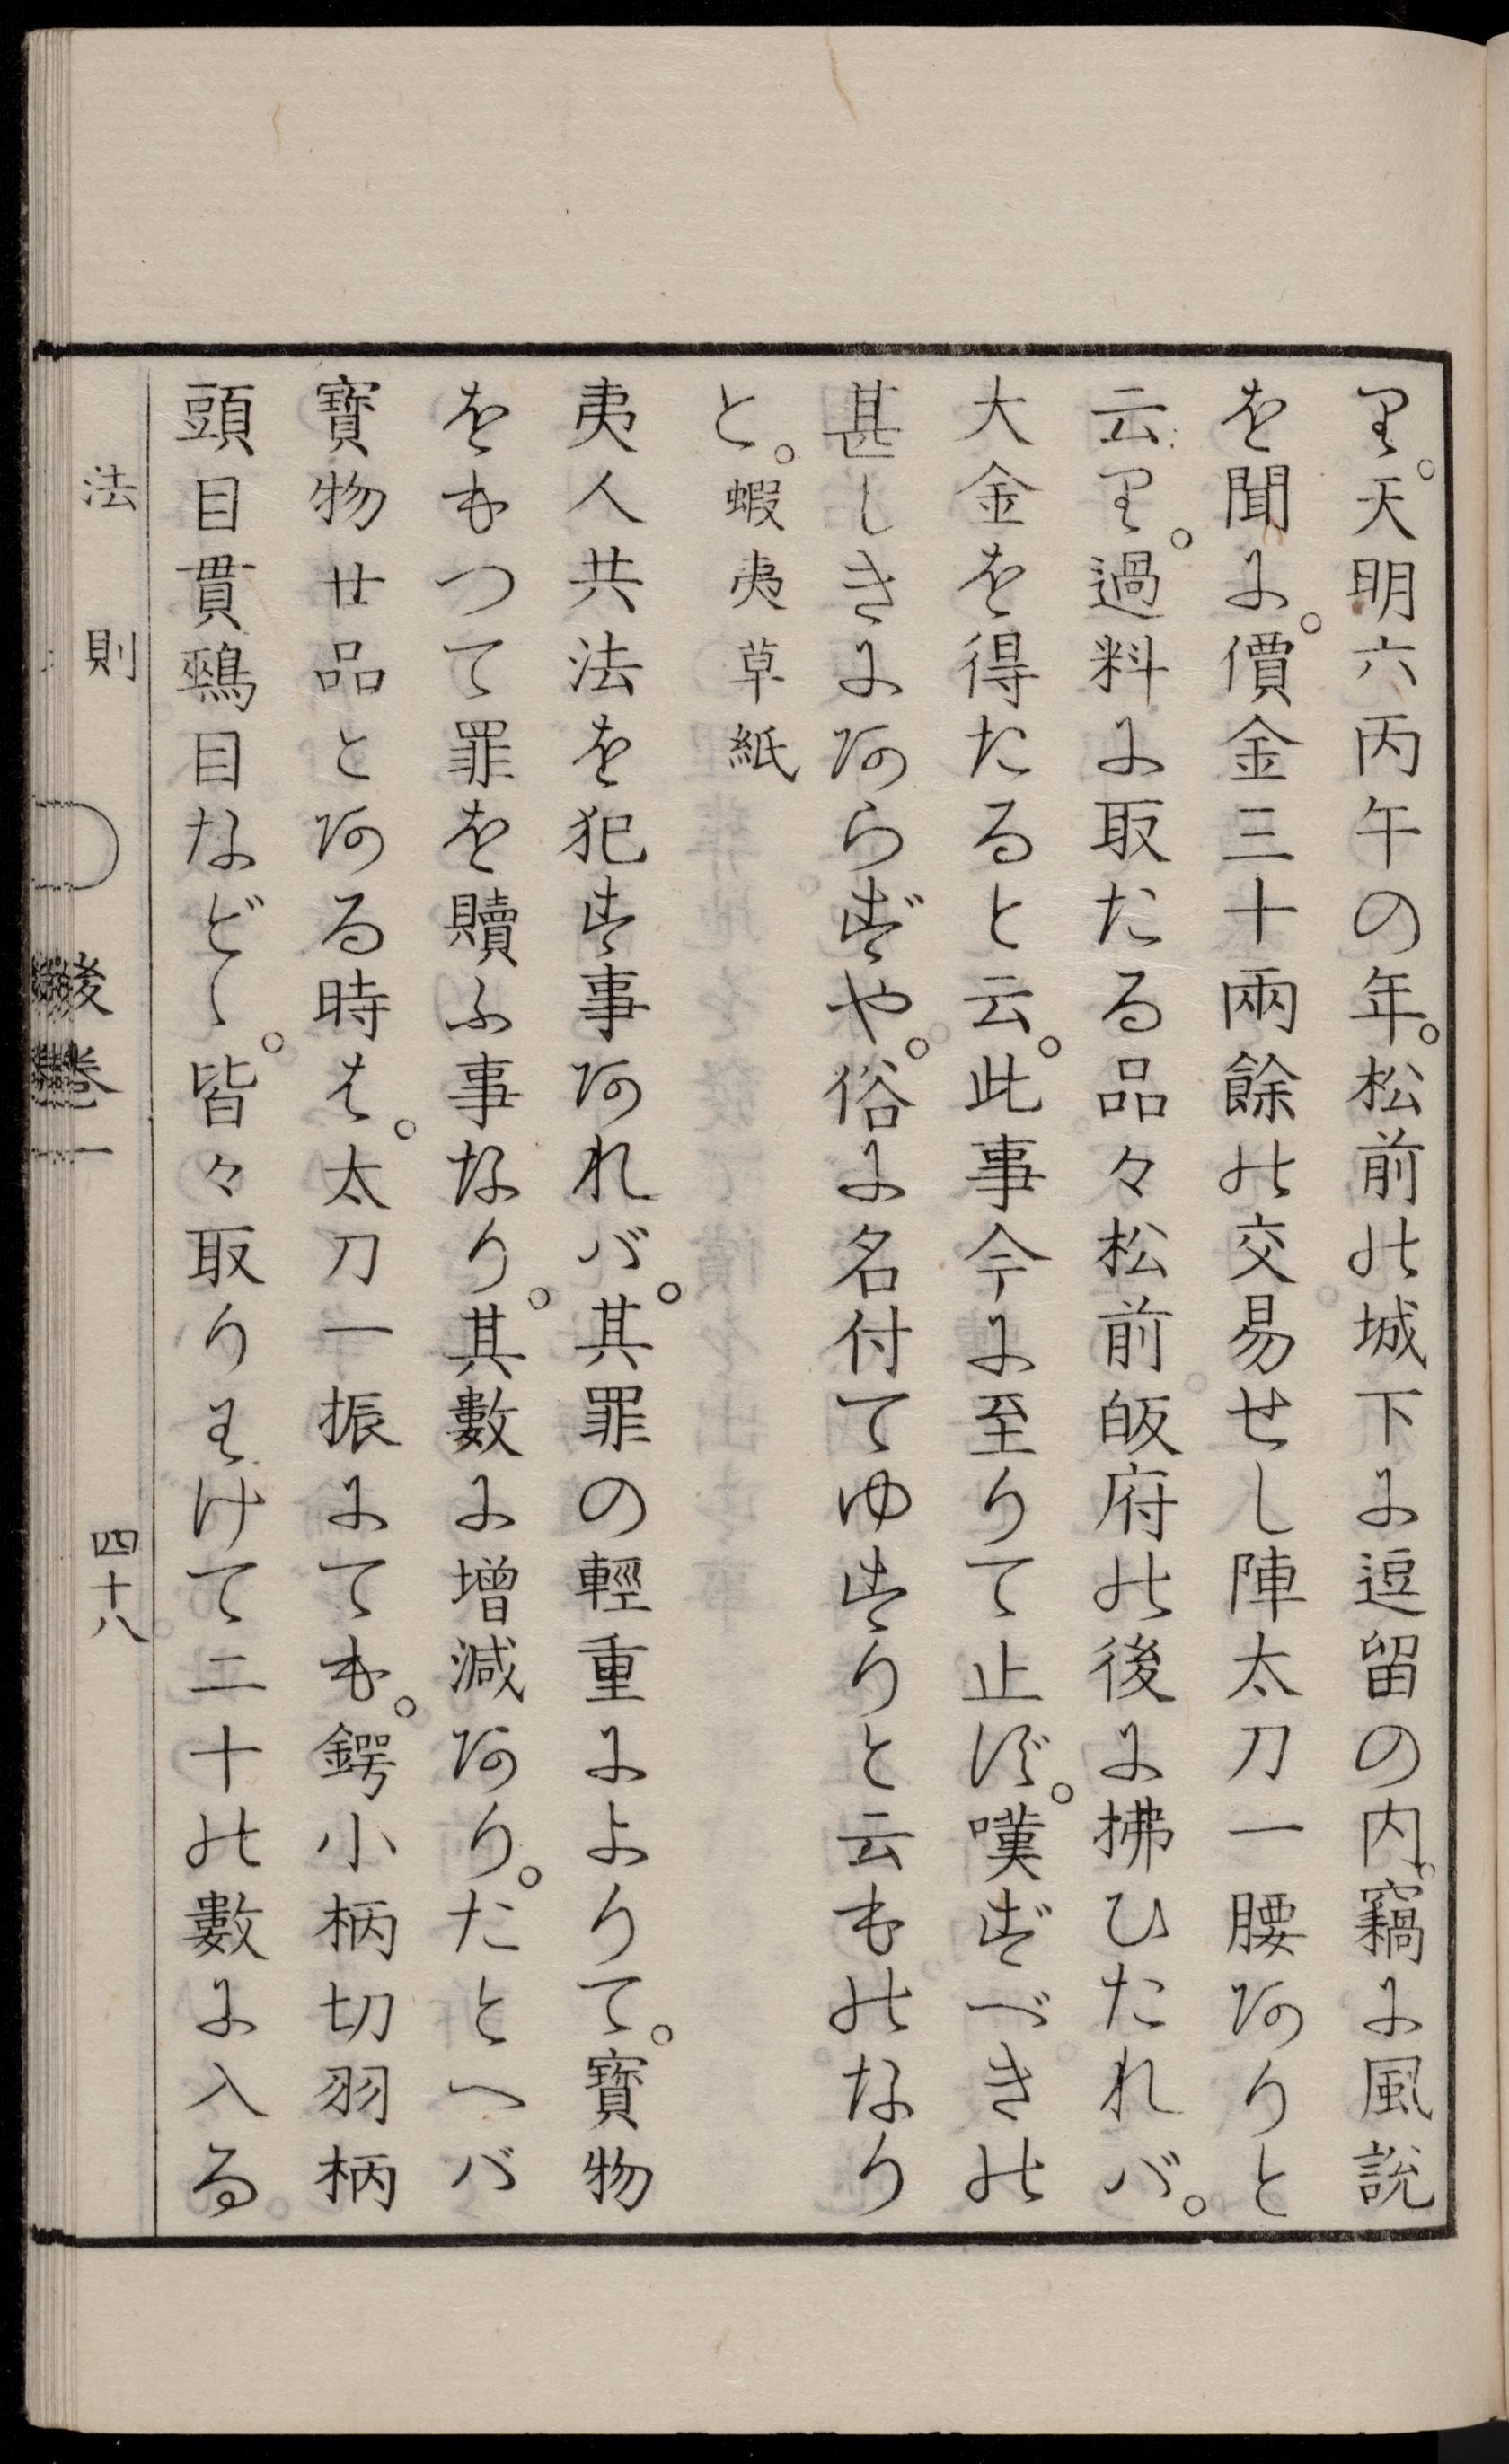 り。天明六丙午の年。松前の城下に逗留の内。竊に風説
を聞に。價金三十兩餘の交易せし陣太刀一腰ありと
云り。過料に取たる品々松前皈府の後に拂ひたれバ。
大金を得たると云。此事今に至りて止ず。嘆ずべきの
甚しきにあらずや。俗に名付てゆすりと云ものなり
と。蝦夷草紙
夷人共法を犯す事あれバ。其罪の輕重によりて。寳物
をもつて罪を贖ふ事なり。其數に增減あり。たとへバ
寳物廿品とある時は。太刀一振にても。鍔小柄切羽柄
頭目貫鵐目などゝ。皆々取りわけて二十の數に入る
法則 後卷一 四十八